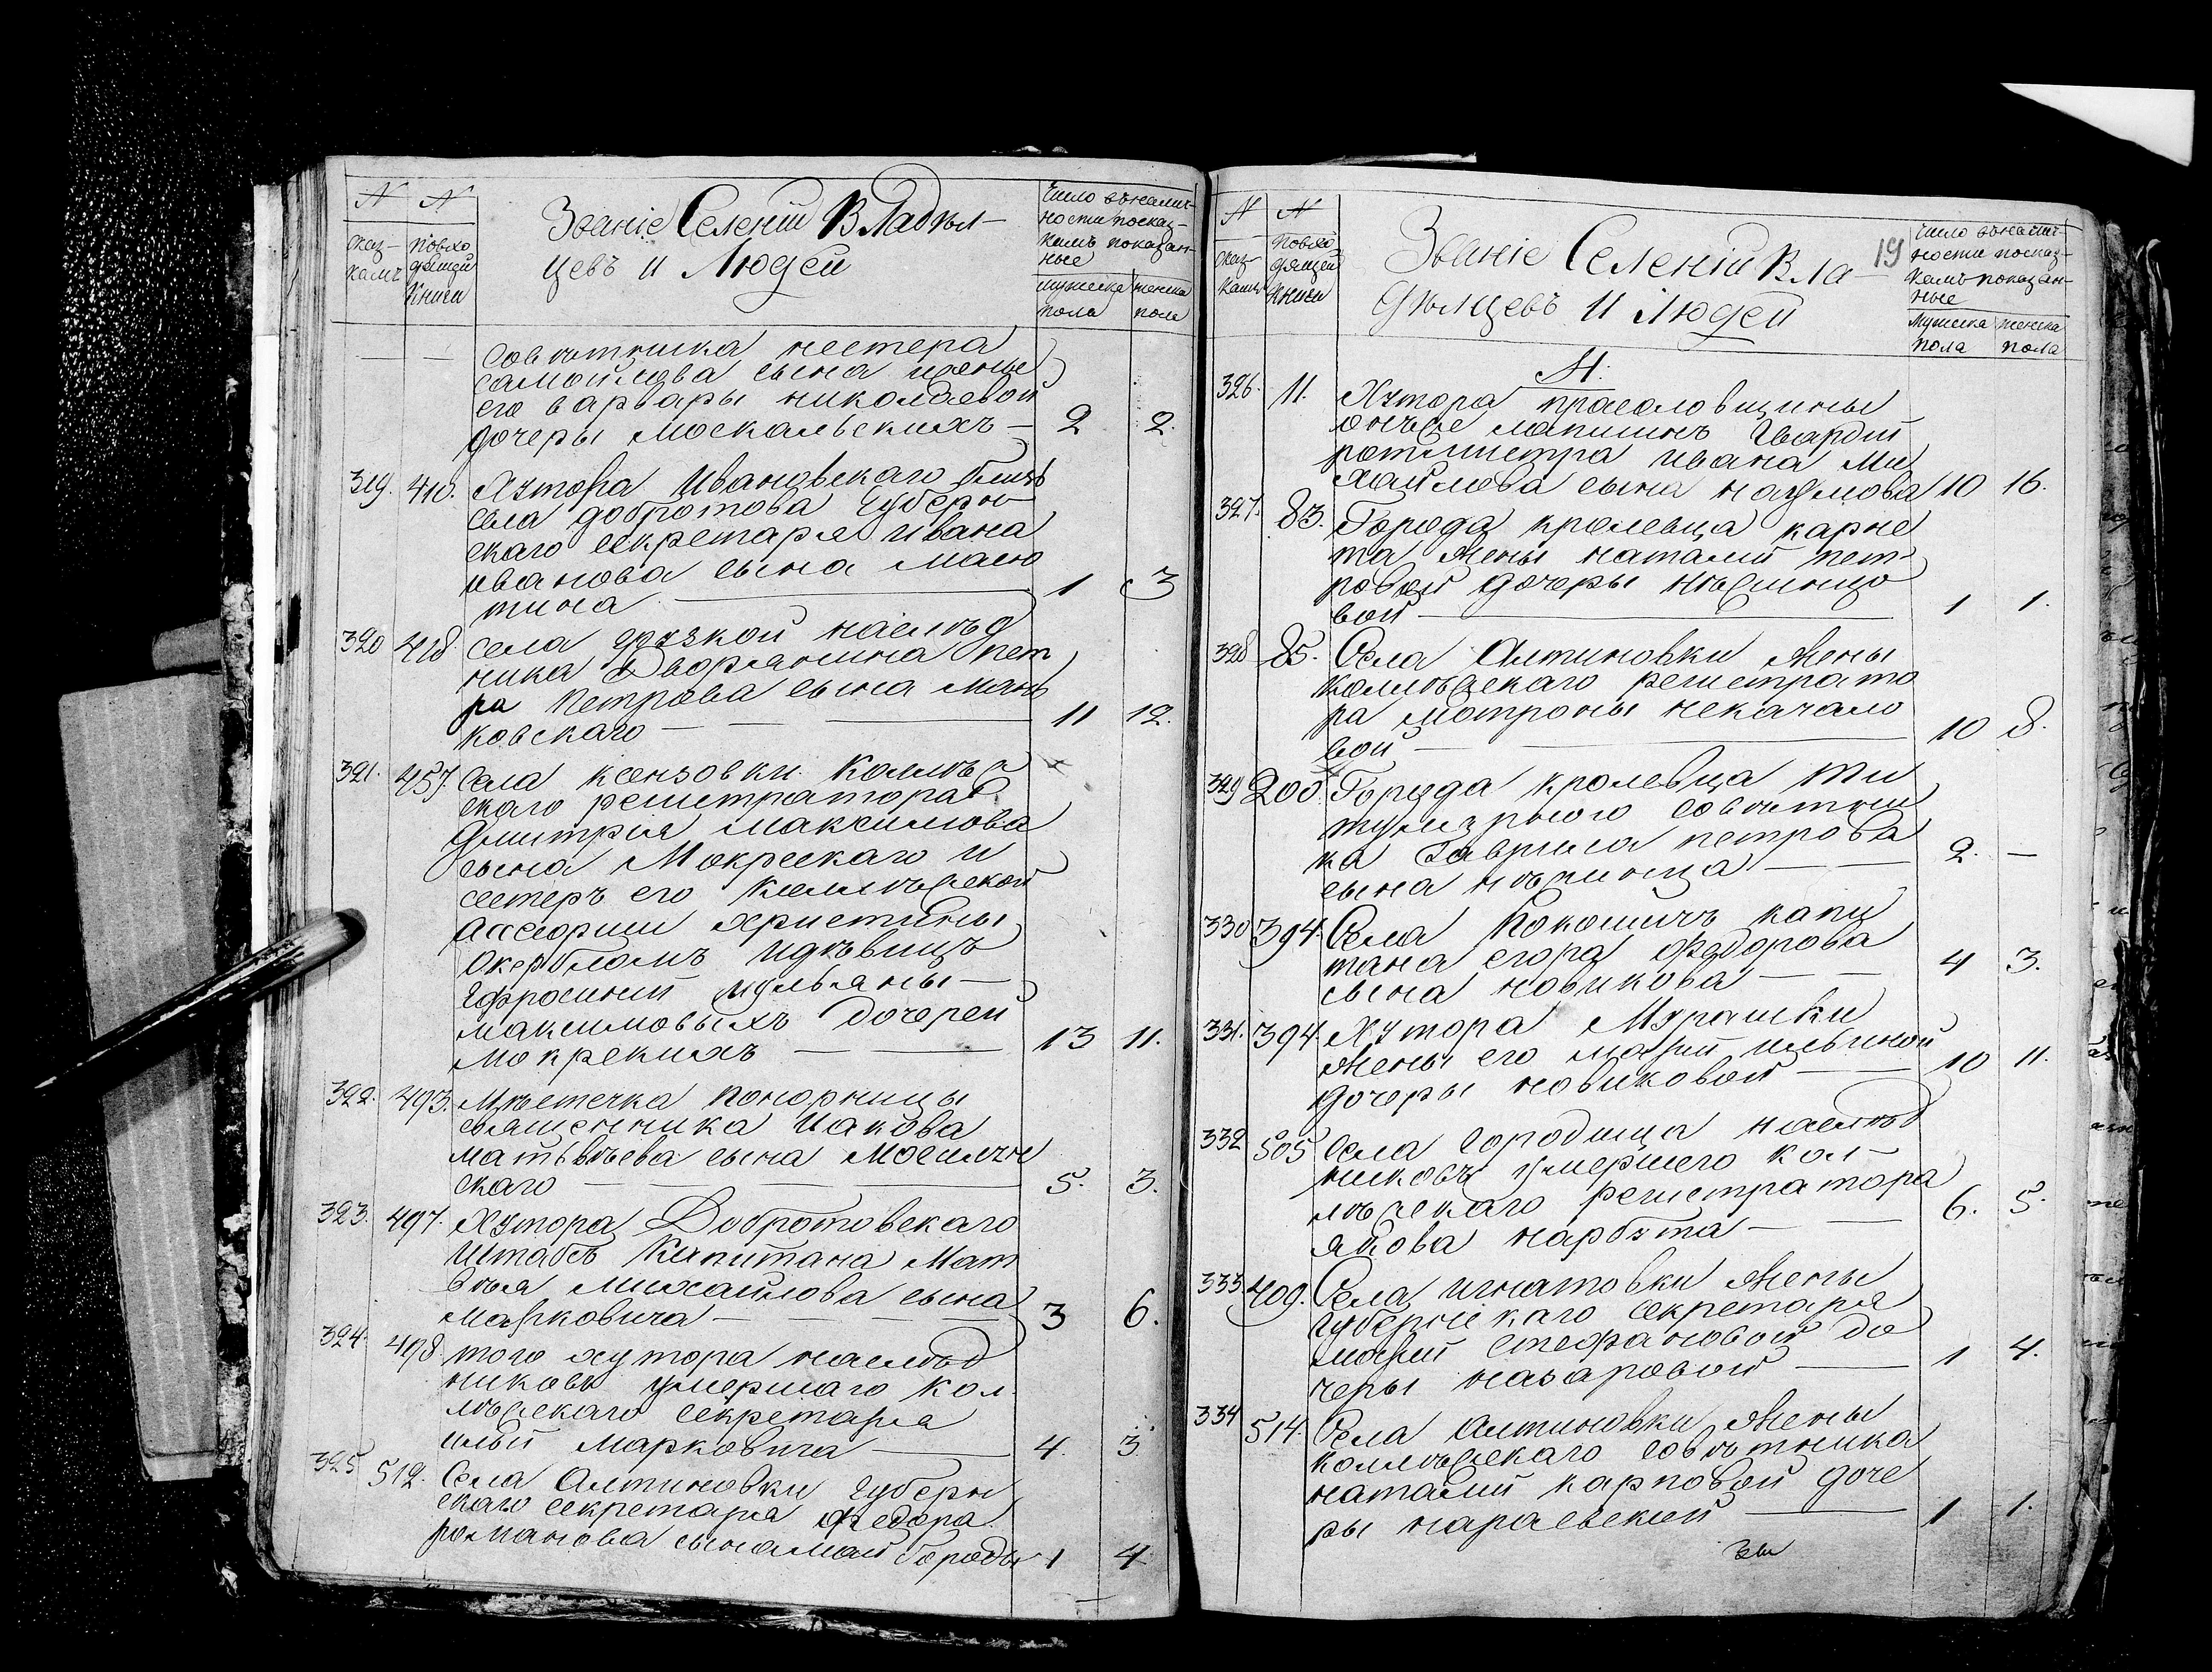 N N
сказ-
камъ
повхо
дящей
книги
Званіе Селеній Владѣл-
цевъ и Людей
Число вналич-
ности посказ-
камъ показан-
ные
мужеска
пола
женска
пола
— — Совѣтника нестера
самойлова сына ижены
его варвары николаевой
дочеры москальскихъ — 2 2.
319. 410. Хутора Ивановскаго близъ
села добротова Губерн
скаго секретаря ивана
иванова сына
тина — 1 3
320 418 села наслѣд
ника Дворянина пет
ра Петрова сына
ковскаго — 11 12.
321. 457. села Коллѣж
скаго регистратора
Дмитрія Максимова
сына Мокрскаго и
сестеръ его Коллѣжской
Ассесорши христины
идѣвицъ
Ефросиніи иульяны —
максимовыхъ дочерей
мокрскихъ — 13 11.
322. 493. Мѣстечка понорницы
священника Иакова
матвѣева сына
скаго — 5. 3.
323. 497. Хутора Добротовскаго
Штабсъ Капитана Мат
вѣя Михайлова сына
Марковича — 3 6.
324. 498 того хутора наслѣд
никовъ умершаго Кол
лѣжскаго секретаря
ильи Марковича — 4. 3
325 512. Села Алтиновки Губерн
скаго секретаря Федора
романова сына 1 4
N N
сказ-
камъ
Повхо
дящей
книги
Званіе Селеній Вла-
дѣлцевъ и Людей
19
Число вналич-
ности посказ-
камъ показан-
ные
Мужеска
пола
женска
пола
Н.
326. 11. Хутора прасоловщины
онъже лапшинъ Гвардіи
ротмистра ивана Ми
хайлова сына наумова 10 16.
327. 83. Города кролевца карне
та жены наталіи пет-
ровой дочеры
вой — 1 1.
328 85. Села Алтиновки жены
коллѣжскаго регистрато
ра мотроны некачало
вой — 10 8.
329 200 Города кролевца ти
тулярного совѣтни
ка Гаврила петрова
сына — 2. —
330 394. Села Покошичъ капи
тана егора федорова
сына новикова — 4 3.
331. 394. Хутора Мурашки
жены его маріи ильиной
дочеры новиковой — 10 11.
332 505 села городища наслѣд
никовъ умершего кол-
лѣжскаго регистратора
якова нарбута — 6. 5.
333 409. Села игнатовки жены
Губернскаго секретаря
маріи стефановой до
черы назаровой — 1 4.
334 514. Села Алтиновки жены
коллѣжскаго совѣтника
наталіи карповой доче
ры нараевской — 1 1.